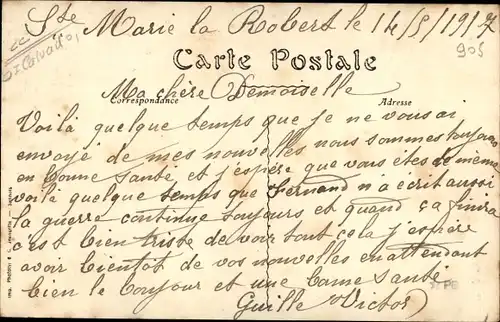 Ste Marie la Robert le 14/5/1917
Carte Postale
Ma chère Demoiselle
Correspondance
Adresse
Voilà quelque temps que je ne vous ai
envoyé de mes nouvelles nous sommes toujours
en bonne santé et j'espère que vous etes de même
voilà quelque temps que Fernand n'a ecrit aussi
la guerre continue toujours et quand ça finira
c'est bien triste de voir tout cela j'espère
avoir bientot de vos nouvelles en attendant
bien le bonjour et une bonne santé
Guille Victor
905
Calvados